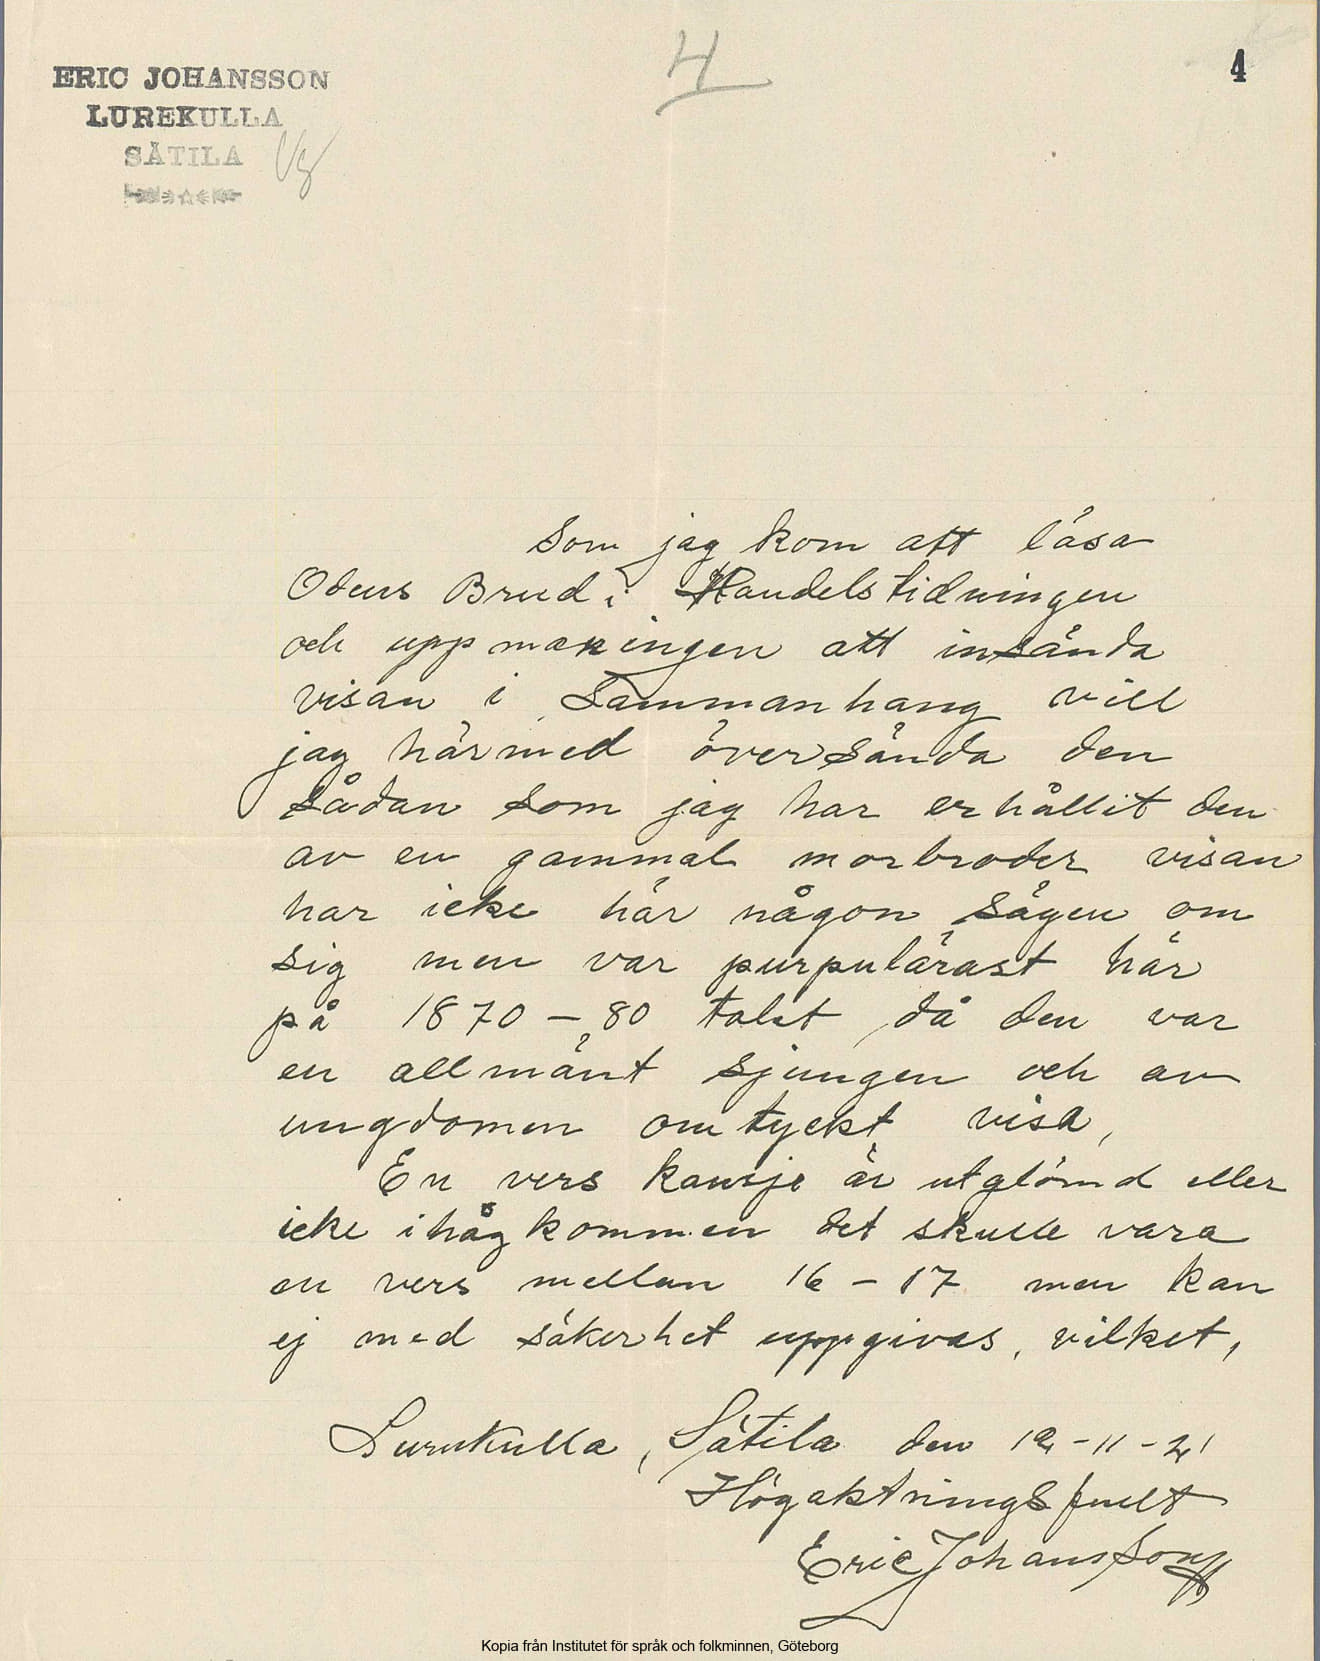 4
4
ERIC JOHANSSON
LUREKULLA
SÄTILA
Vg
Som jag kom att läsa
Odens Brud i Handelstidningen
och uppmaningen att insända
visan i Sammanhang vill
jag härmed översända den
sådan som jag har erhållit den
av en gammal morbroder visan
har icke här någon sägen om
sig men var purpulärast här
på 1870 – 80 talet då den var
en allmänt sjungen och av
ungdomen omtyckt visa,
En vers kansje är utglömd eller
icke ihågkommen det skulle vara
en vers mellan 16 – 17 men kan
ej med säkerhet uppgivas, vilket,
Lurekulla, Sätila den 12-11-21
Högaktningsfullt
Eric Johansson
Kopia från Institutet för språk och folkminnen, Göteborg